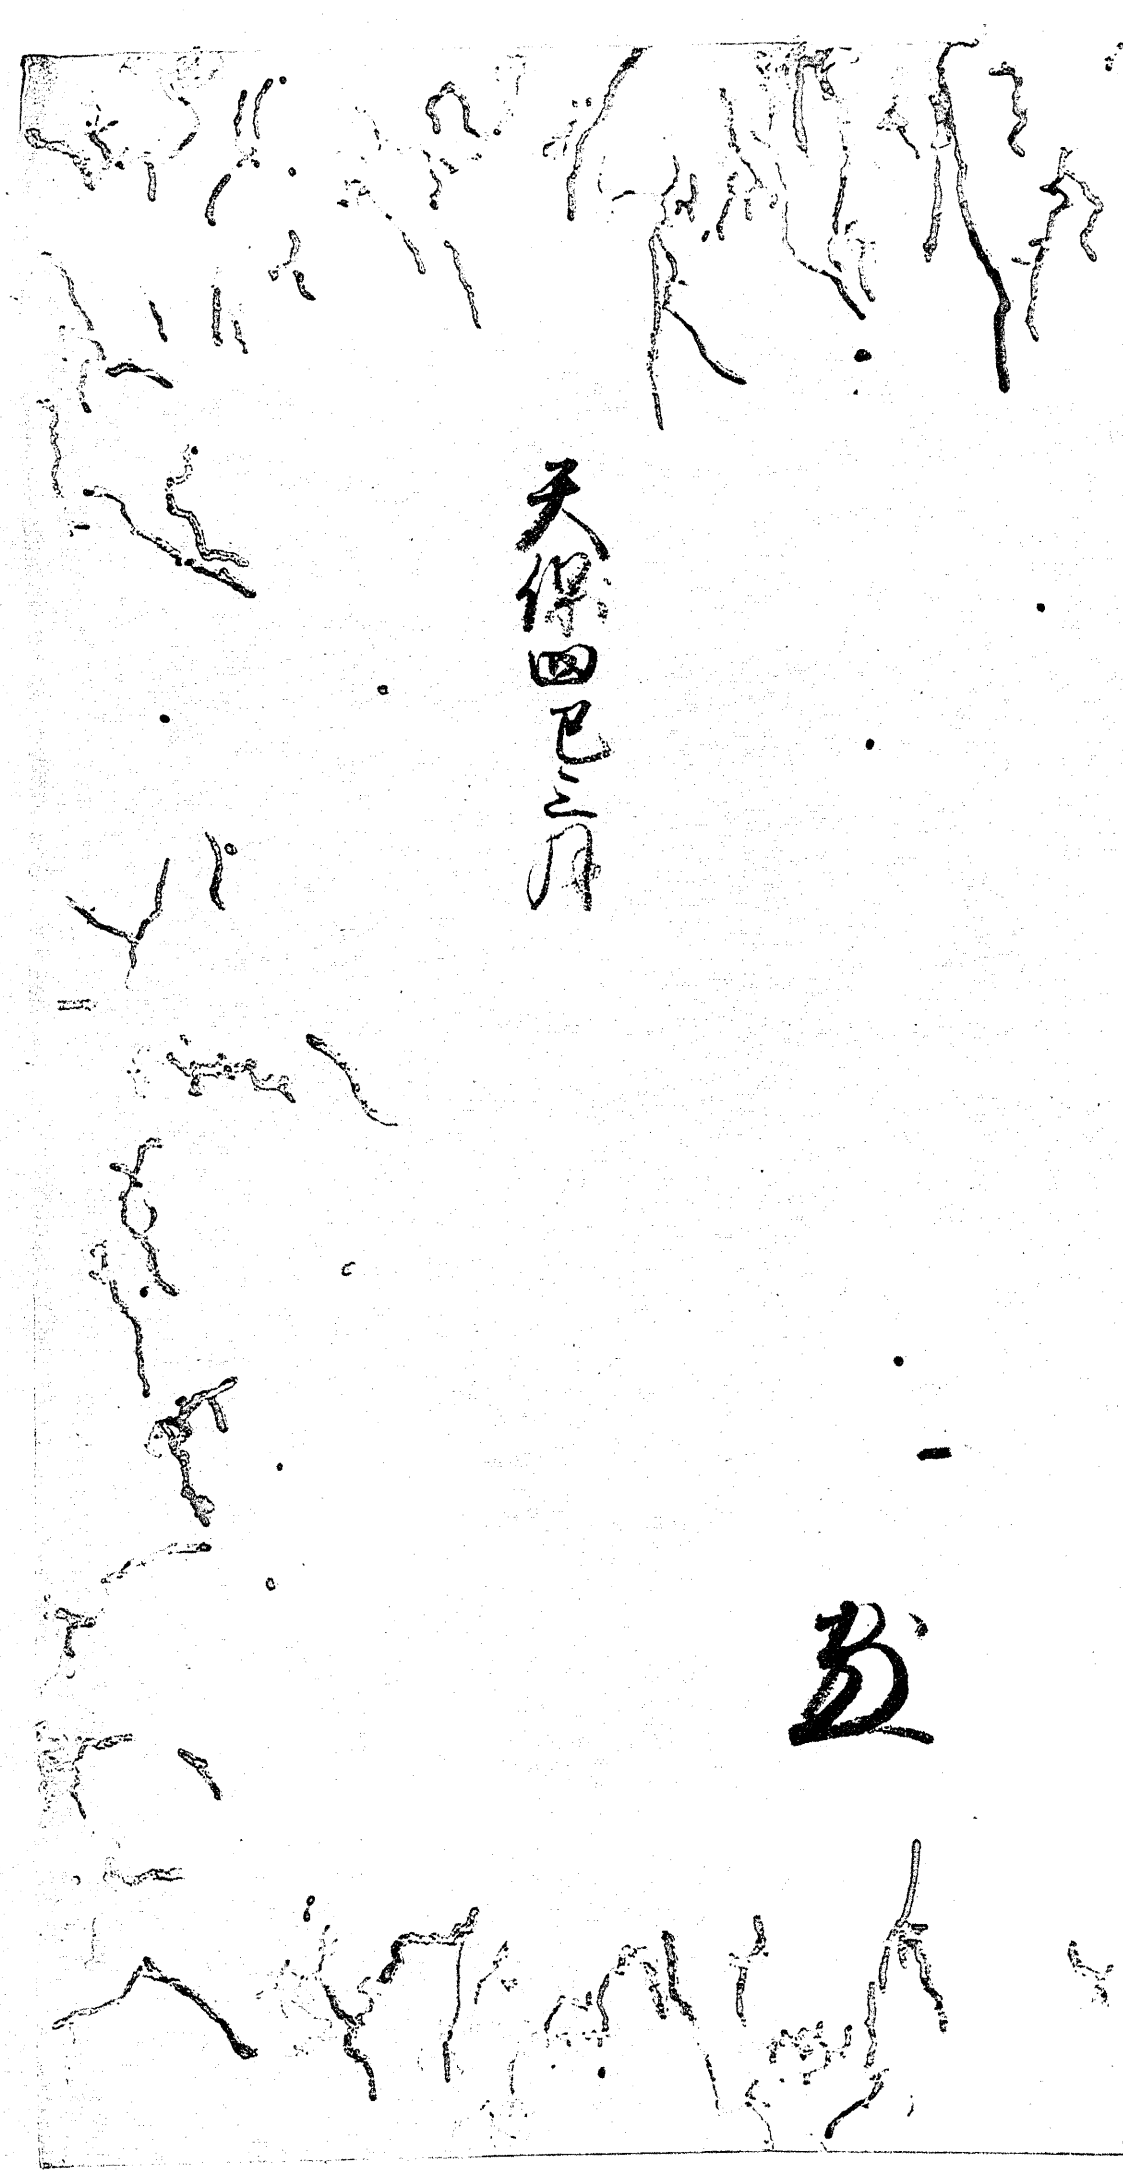 天保四巳三月